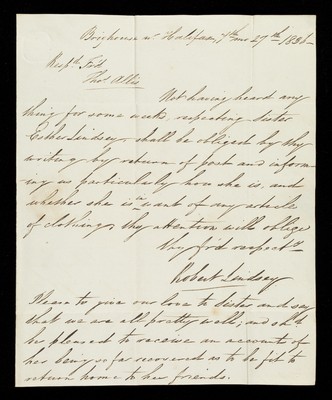 Brighouse nr Halifax, 7th mo 27th 1836
Respd. Frd.
Thos. Allis
Not having heard any
thing for some weeks, respecting Sister
Esther Lindsey, shall be obliged by thy
writing by return of post and inform-
ing us particularly how she is, and
whether she is in want of any article
of clothing, thy attention will oblige
Thy fr'd respecty.
Robert Lindsey
Please to give our love to Sister and say
that we are all pretty well, and shd.
be pleased to receive an account of
her being so far recovered as to be fit to
return home to her friends.